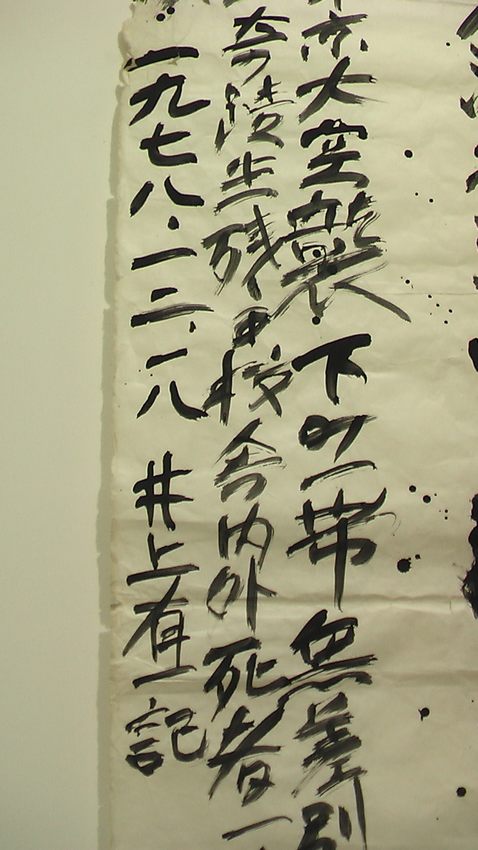 京大空襲 下町一帯 無差別
奇蹟生残 校舎内外 死者一
一九七八・一二、一八 井上有一記